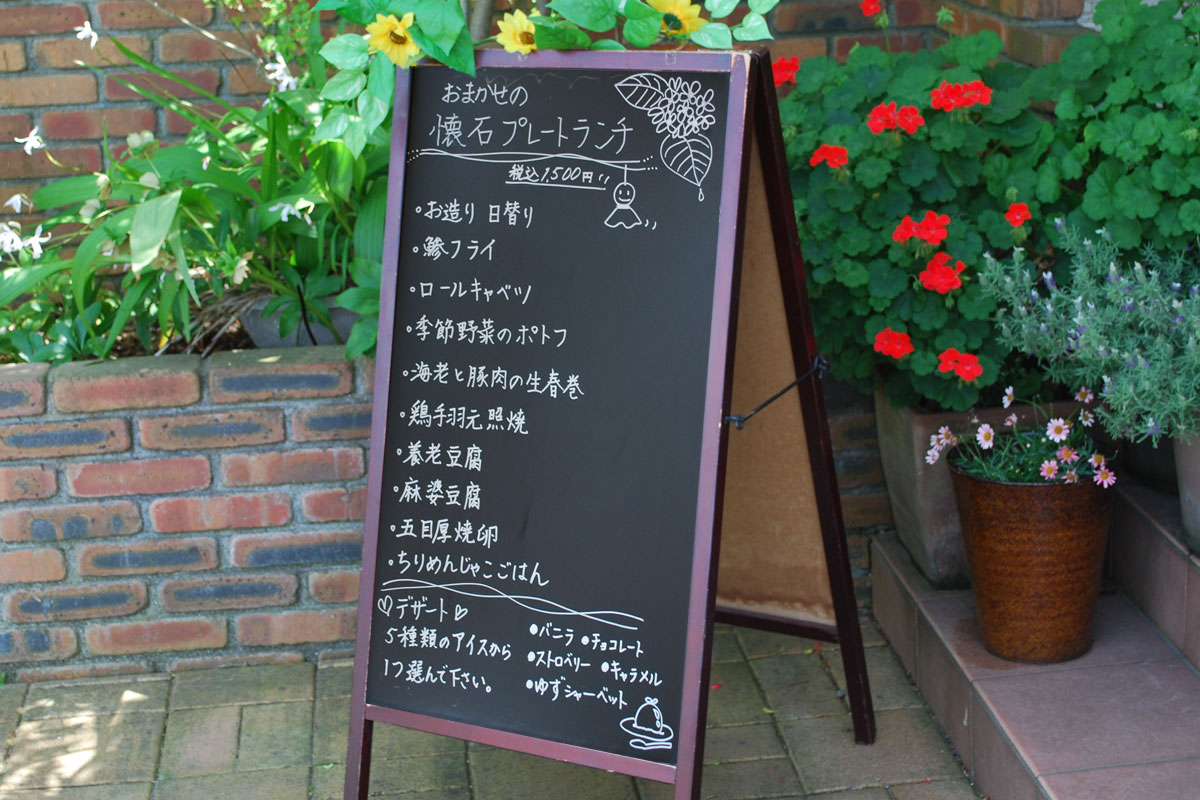 おまかせの
懐石プレートランチ
税込1,500円
・お造り 日替り
・鯵フライ
・ロールキャベツ
・季節野菜のポトフ
・海老と豚肉の生春巻
・鶏手羽元照焼
・養老豆腐
・麻婆豆腐
・五目厚焼卵
・ちりめんじゃこごはん
♡デザート♡
5種類のアイスから
1つ選んで下さい。
●バニラ ●チョコレート
●ストロベリー ●キャラメル
●ゆずシャーベット